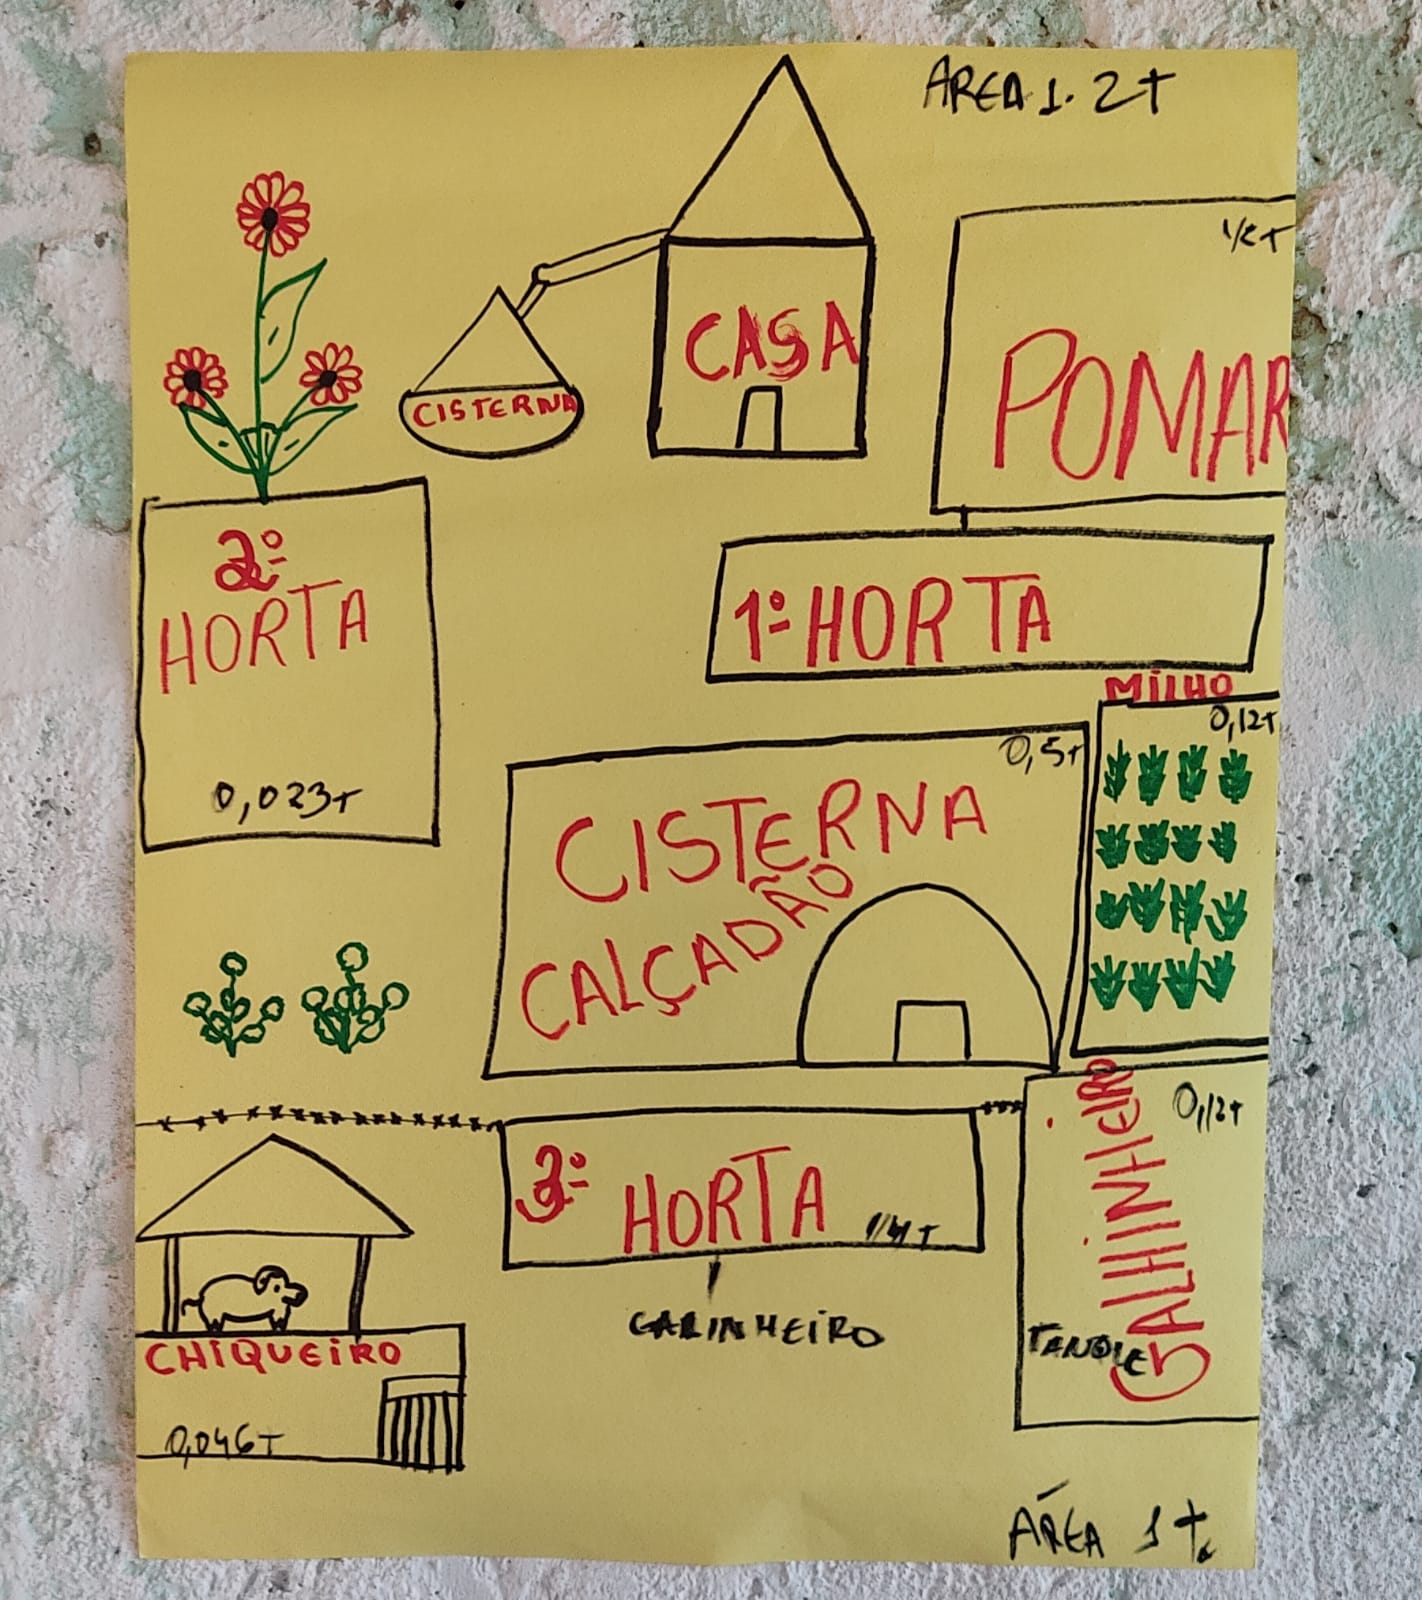 AREA 1. 2T
1/2T
POMAR
CASA
CISTERNA
2º
HORTA
0,023T
1º HORTA
MILHO
0,12T
0,5T
CISTERNA
CALÇADÃO
GALHINHEIRO
0,12T
3º HORTA
1/4T
CHIQUEIRO
0,046T
ÁREA 1T.